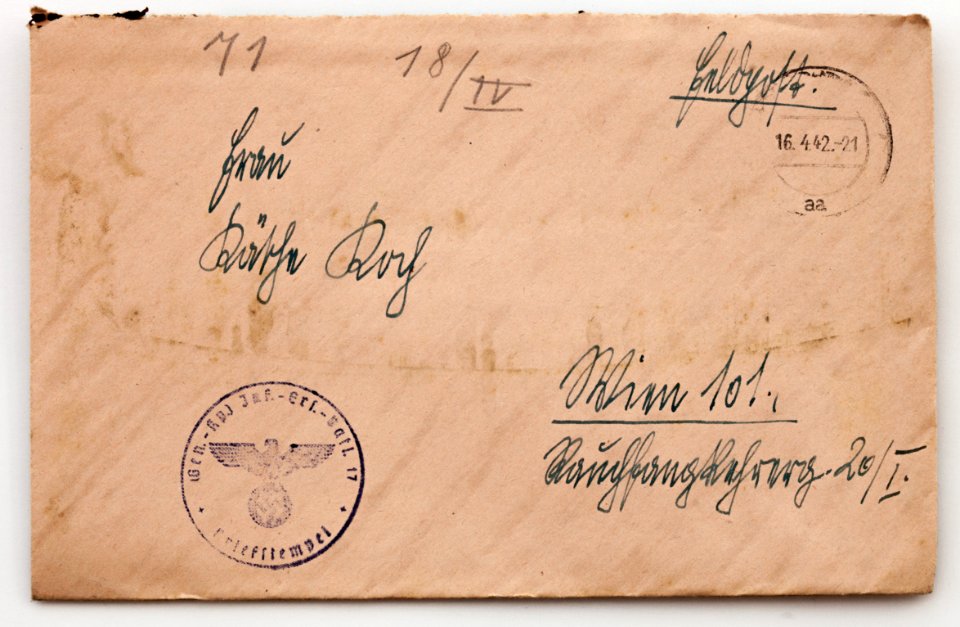 71 18/IV
Feldpost.
16.4.42.-21
aa
Frau
Käthe Koch
Wien 101.,
Rauchfangkehrerg. 20/I.
Gen.-Kp) Inf.-Ers.-Batl. 17
Briefstempel